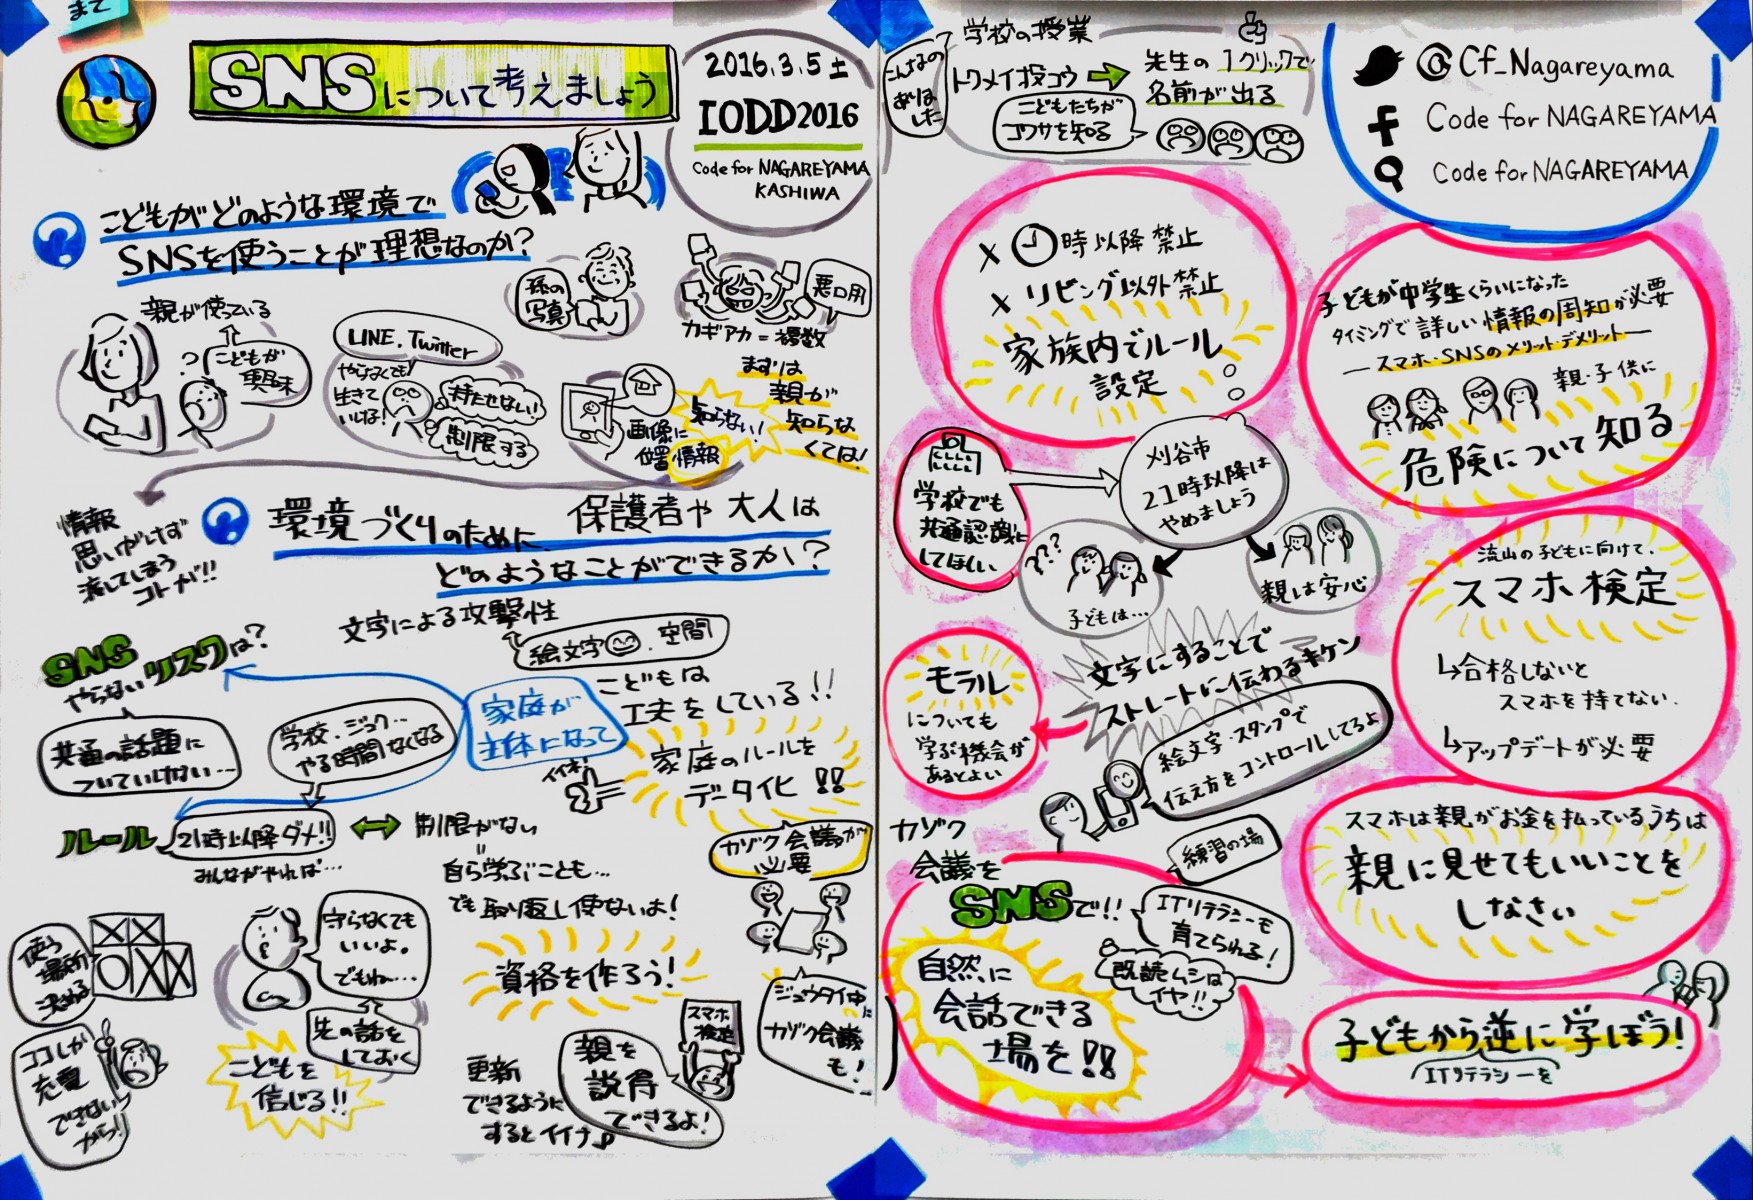 まで
SNSについて考えましょう
2016.3.5土
IODD2016
Code for NAGAREYAMA
KASHIWA
こどもがどのような環境で
SNSを使うことが理想なのか?
親が使っている
こどもが
興味
LINE.Twitter
やらなくても
生きて
いける!
持たせない!
制限する
孫の
写真
悪口用
カギアカ=複数
画像に
位置情報
知らない!
まずは
親が
知らな
くては!
情報
思いがけず
流してしまう
コトが!!
環境づくりのために、保護者や大人は
どのようなことができるか?
文字による攻撃性
絵文字 . 空間
SNS
やらないリスクは?
共通の話題に
ついていけない…
学校・ジュク…
やる時間なくなる
家庭が
主体になって
こどもは
工夫をしている!!
家庭のルールを
データ化!!
イイネ!
ルール
21時以降ダメ!!
みんながやれば…
制限がない
自ら学ぶことも…
でも取り返し使ないよ!
カゾク会議が
必要
使う
場所
決める
ココしか
充電
できない
から!
守らなくても
いいよ。
でもね…
先の話を
しておく
こどもを
信じる!!
資格を作ろう!
更新
できるように
するとイイナ♪
スマホ
検定
親を
説得
できるよ!
ジュウタイ中に
カゾク会議
も!
こんなの
ありま
した
学校の授業
トクメイ投コウ
先生の1クリックで
名前が出る
こどもたちが
コワサを知る
@Cf_Nagareyama
Code for NAGAREYAMA
Code for NAGAREYAMA
× 時以降禁止
× リビング以外禁止
家族内でルール
設定
子どもが中学生くらいになった
タイミングで詳しい情報の周知が必要
―スマホ・SNSのメリット・デメリット―
親・子供に
危険について知る
学校でも
共通認識に
してほしい
刈谷市
21時以降は
やめましょう
???
子どもは…
親は安心
流山の子どもに向けて、
スマホ検定
↳合格しないと
スマホを持てない.
↳アップデートが必要
文字にすることで
ストレートに伝わるキケン
モラル
についても
学ぶ機会が
あるとよい
絵文字・スタンプで
伝え方をコントロールしてるよ
練習の場
カゾク
会議を
SNSで!!
ITリテラシーも
育てられる!
既読ムシは
イヤ!!
自然に
会話できる
場を!!
スマホは親がお金を払っているうちは
親に見せてもいいことを
しなさい
子どもから逆に学ぼう!
ITリテラシーを